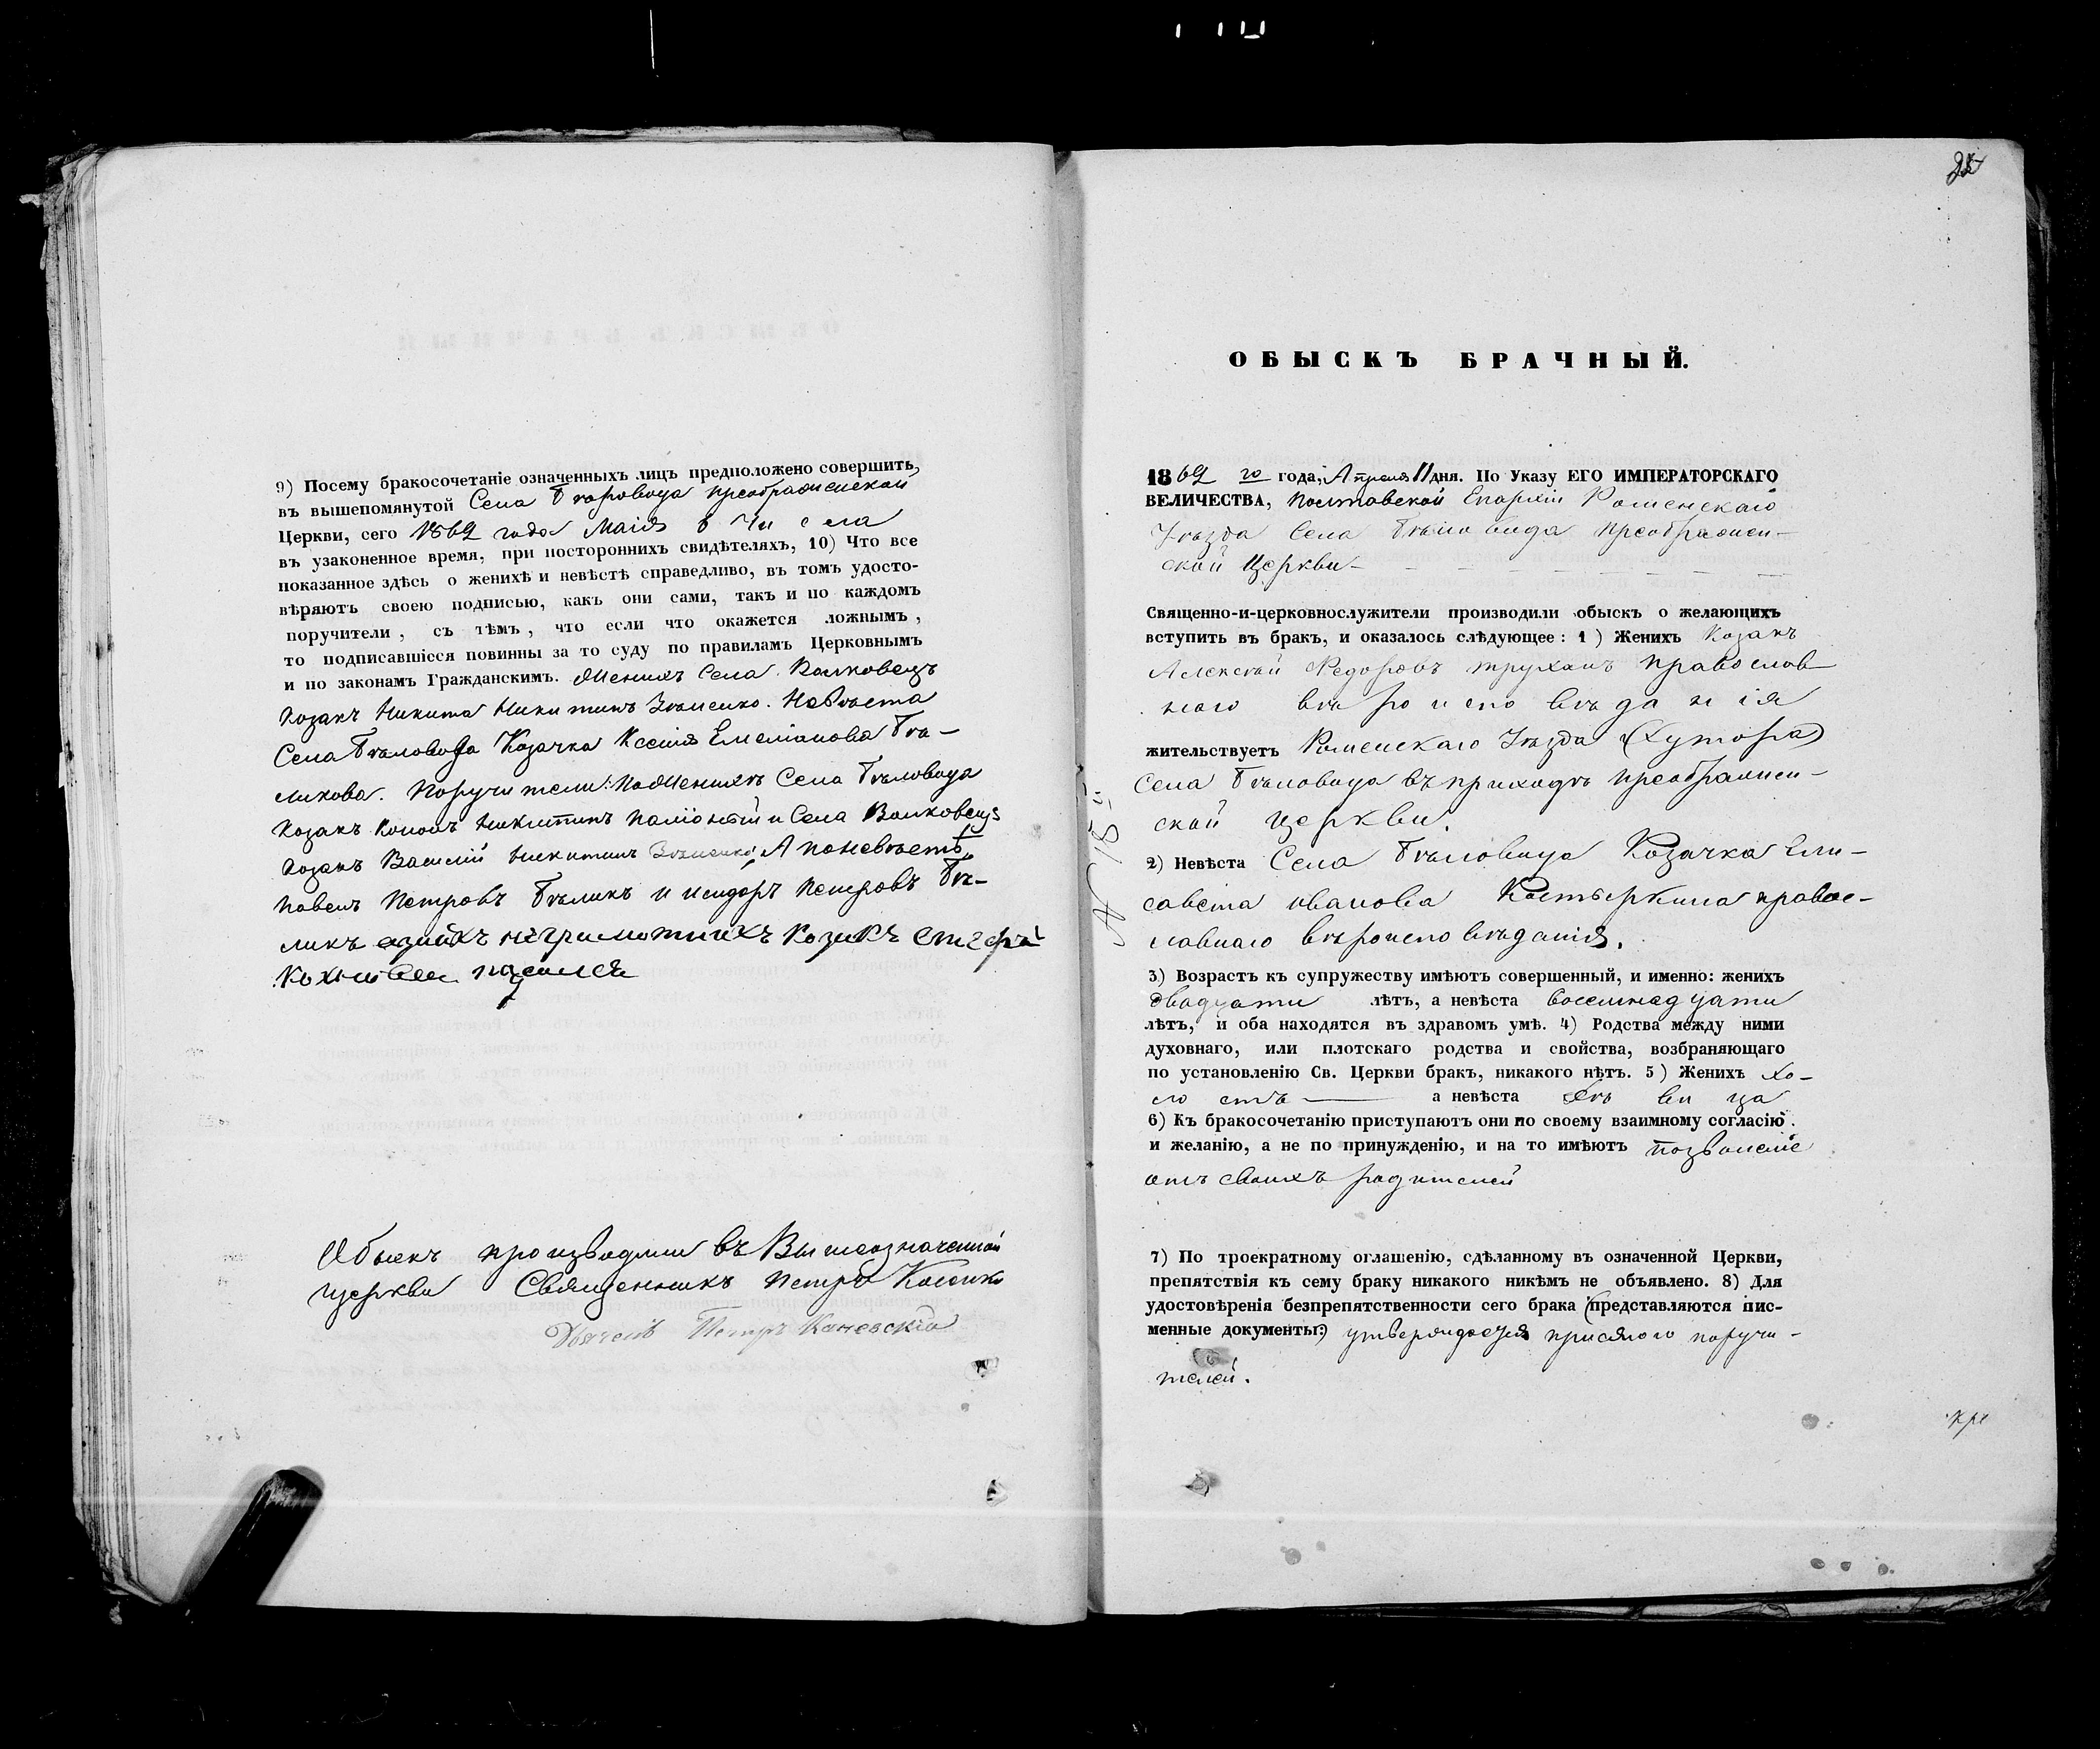 9) Посему бракосочетаніе означенныхъ лицъ предположено совершить,
въ вышепомянутой Села Преображенской
Церкви, сего 1862 года Маія 6 числа
въ узаконенное время, при постороннихъ свидѣтеляхъ, 10) Что все
показанное здѣсь о женихѣ и невѣстѣ справедливо, въ томъ удосто-
вѣряютъ своею подписью, какъ они сами, такъ и по каждомъ
поручители, съ тѣмъ, что если что окажется ложнымъ,
то подписавшіеся повинны за то суду по правиламъ Церковнымъ
и по законамъ Гражданскимъ. Женихъ Села Волковецъ
Козакъ Никита Никитинъ. Невѣста
Села Бѣловода Козачка Ксенія Емеліанова Бѣ-
ликова. Поручители: По Женихѣ Села Бѣловода
Козакъ Кононъ Никитинъ и Села Волковецъ
Козакъ Василій Никитинъ А по невѣстѣ
Павелъ Петровъ Бѣликъ и Исидоръ Петровъ Бѣ-
ликъ неграмотнихъ козакъ
Обыскъ производили въ Вышеозначенной
церкви Священникъ Петръ
Дьячекъ Петръ Каневскій
ОБЫСКЪ БРАЧНЫЙ.
1862 го года, Апреля 11 дня. По Указу ЕГО ИМПЕРАТОРСКАГО
ВЕЛИЧЕСТВА, Полтавской Епархіи Роменскаго
Уѣзда Села Бѣловода Преображен-
ской Церкви
Священно-и-церковнослужители производили обыскъ о желающихъ
вступить въ бракъ, и оказалось слѣдующее: 1) Женихъ Козакъ
Алексѣй Федоровъ Труханъ православ
наго вѣроисповѣданія
жительствуетъ Роменскаго Уѣзда (Хутора)
Села Бѣловода въ приходѣ Преображен-
ской церкви.
2) Невѣста Села Бѣловода Козачка Ели-
савета Иванова Костыркина правос-
лавнаго вѣроисповѣданія.
3) Возрастъ къ супружеству имѣютъ совершенный, и именно: женихъ
двадцати лѣтъ, а невѣста восемнадцати
лѣтъ, и оба находятся въ здравомъ умѣ. 4) Родства между ними
духовнаго, или плотскаго родства и свойства, возбраняющаго
по установленію Св. Церкви бракъ, никакого нѣтъ. 5) Женихъ хо-
лостъ а невѣста дѣвица
6) Къ бракосочетанію приступаютъ они по своему взаимному согласію
и желанію, а не по принужденію, и на то имѣютъ позволеніе
отъ своихъ родителей
7) По троекратному оглашенію, сдѣланному въ означенной Церкви,
препятствія къ сему браку никакого никѣмъ не объявлено. 8) Для
удостовѣренія безпрепятственности сего брака (представляются пис-
менные документы:) утверждается присягою поручи-
телей.